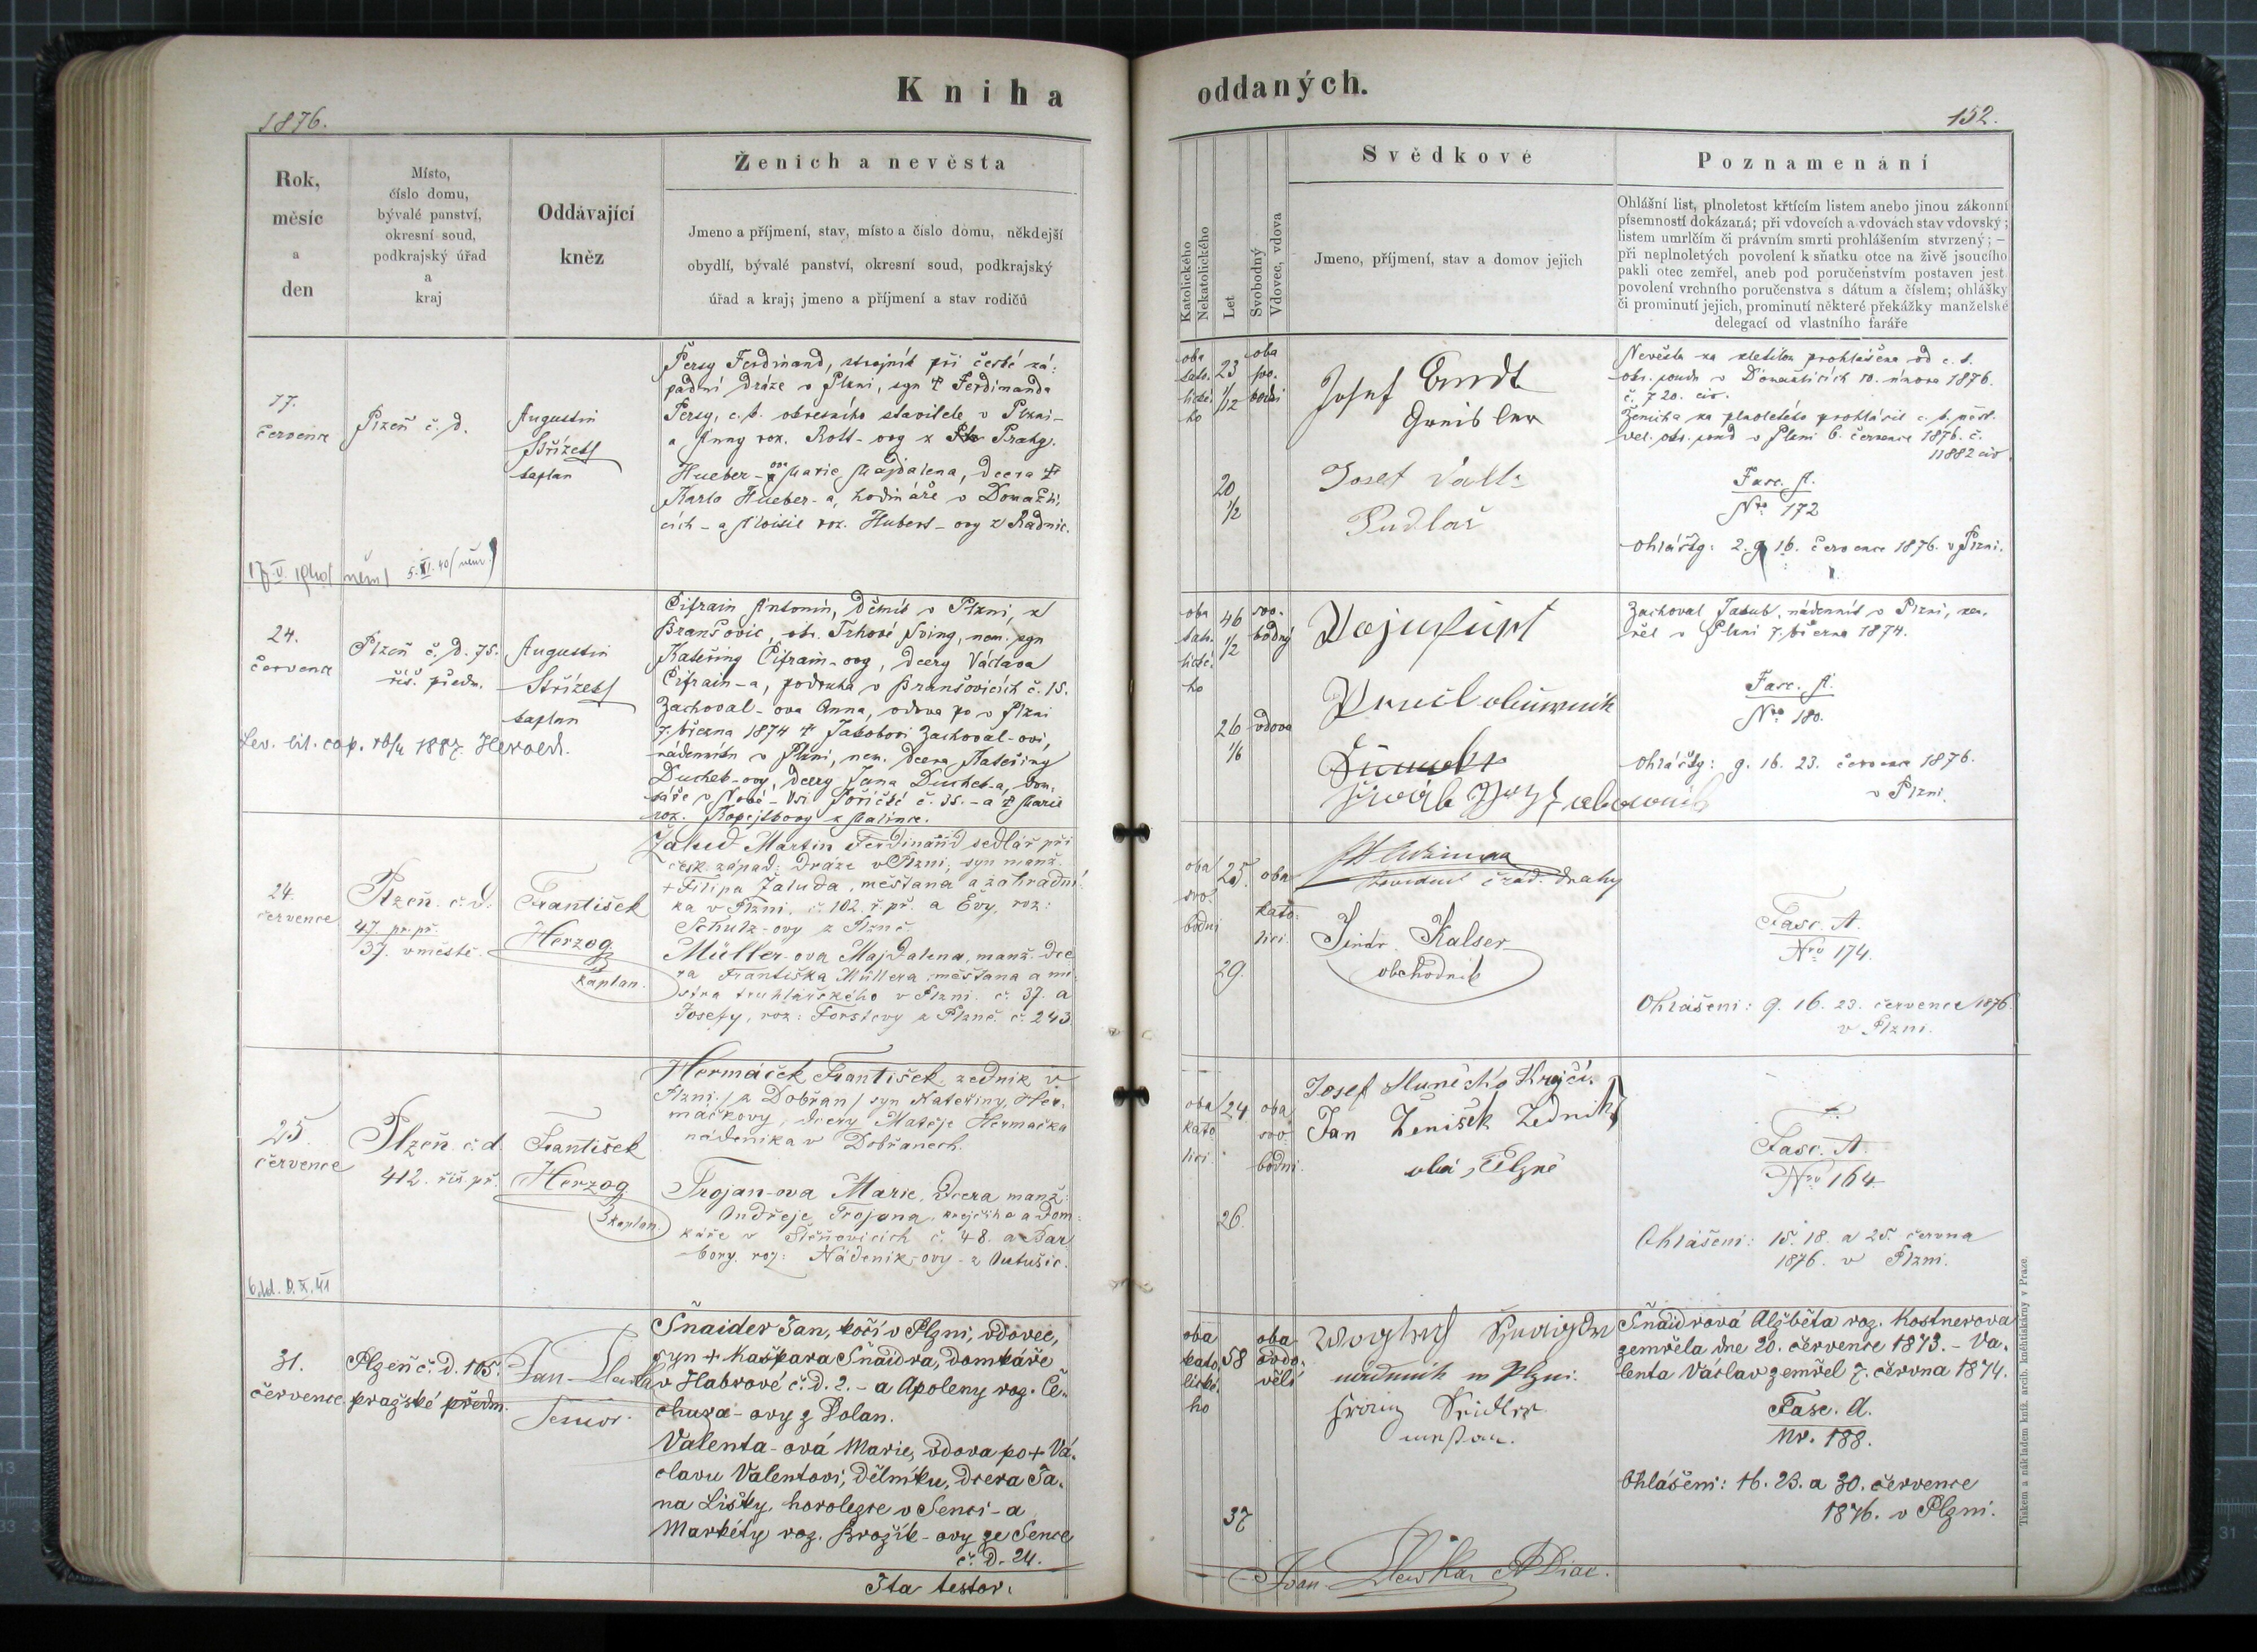 Kniha oddaných.
1876.
152.
Rok,
měsíc
a
den
Místo,
číslo domu,
bývalé panství,
okresní soud,
podkrajský úřad
a
kraj
Oddávající
kněz
Ženich a nevěsta
Jmeno a příjmení, stav, místo a číslo domu, někdejší
obydlí, bývalé panství, okresní soud, podkrajský
úřad a kraj; jmeno a příjmení a stav rodičů
Katolického
Nekatolického
Let
Svobodný
Vdovec, vdova
Svědkové
Jmeno, příjmení, stav a domov jejich
Poznamenání
Ohlášní list, plnoletost křtícím listem anebo jinou zákonní
písemností dokázaná; při vdovcích a vdovách stav vdovský;
listem umrlčím či právním smrti prohlášením stvrzený; –
při neplnoletých povolení k sňatku otce na živě jsoucího
pakli otec zemřel, aneb pod poručenstvím postaven jest
povolení vrchního poručenstva s dátum a číslem; ohlášky
či prominutí jejich, prominutí některé překážky manželské
delegací od vlastního faráře
17.
července
Plzeň č. d.
Augustin
Střízek
kaplan
Persy Ferdinand, strojník při české zá:
padní dráze v Plzni, syn † Ferdinanda
Persy, c. k. okresního stavitele v Plzni-
a Anny roz. Rott-ovy z Prahy.
Hueber-ova Marie Majdalena, dcera †
Karla Hueber-a, hodináře v Domažli,
cích - a Aloisie roz. Hubert-ovy z Radnic.
17.V.1940 něm
5.XI.40 něm.
oba
kato.
lické.
ho
23
1/12
20
1/2
oba
svo.
bodni
Josef
Josef
Nevěsta za zletilou prohlášena od c. k.
okr. soudu v Domažlicích 10. února 1876.
č. 720. civ.
Ženicha za plnoletého prohlásil c. k. měst.
del. okr. soud v Plzni 6. července 1876. č.
11882 civ.
Fasc. A.
Nro 172
Ohlášky: 2. 9. 16. července 1876. v Plzni.
24.
července
Plzeň č. d. 75.
říš. předm.
Augustin
Střízek
kaplan
Cifrain Antonín, dělník v Plzni, z
Branšovic, okr. Trhové Sviny, nem. syn
Kateřiny Cifrain-ovy, dcery Václava
Cifrain-a, podruha v Branšovicích č. 15.
Zachoval-ova Anna, vdova po v Plzni
7. března 1874 † Jakobovi Zachoval-ovi,
nádenníku v Plzni, nem. dcera Kateřiny
Ducheb-ovy, dcery Jana Ducheb-a, dom.
káře v Nové-Vsi Poříčské č. 35. - a † Marie
roz. z Malince.
oba
kato.
lické.
ho
46
1/2
26
1/6
svo.
bodný
vdova
Zachoval Jakub, nádenník v Plzni, zem.
řel v Plzni 7. března 1874.
Fasc. A.
Nro 180.
Ohlášky: 9. 16. 23. července 1876.
v Plzni.
24.
července
Plzeň. č. d.
47. pr. př.
37. v městě.
František
Herzog
kaplan.
Žalud Martin Ferdinand sedlář při
česk. západ. dráze v Plzni, syn manž.
+ Filipa Žaluda, měšťana a zahradní:
ka v Plzni, č. 102. ř. př. a Evy, roz:
Schulz-ovy z Plzně.
Müller-ova Majdalena, manž. dce
ra Františka Müllera, měšťana a mi
stra truhlářského v Plzni. č. 37. a
Josefy, roz: Forstovy z Plzně. č. 243.
oba
svo.
bodni
25.
29.
oba
kato.
lici.
drahy
Jindr. Kalser
obchodník
Fasc. A.
Nro 174.
Ohlášeni: 9. 16. 23. července 1876.
v Plzni.
25.
července
Plzeň. č. d.
412. říš. př.
František
Herzog
kaplan.
Hermaček František, zedník v
Plzni / z Dobřan / syn Kateřiny, Her.
mačkovy, dcery Matěje Hermačka
nádeníka v Dobřanech.
Trojan-ova Marie, dcera manž.
Ondřeje Trojana, krejčího a dom:
káře v Štěňovicích č. 48. a Bar
bory, roz: Nádeník-ovy - z Untušic.
oba
kato
lici.
24.
26.
oba
svo.
bodni.
Josef Krejčí.
Jan Ženíšek Zedník
oba z Plzně
Fasc. A.
Nro 164.
Ohlášeni: 15. 18. a 25. června
1876. v Plzni.
31.
července.
Plzeň č. D. 105.
pražské předm.
Jan
Senior.
Šnaider Jan, kočí v Plzni, vdovec,
syn + Kašpara Šnaidra, domkáře
v Habrové č. D. 2. - a Apoleny roz. Če-
chura-ovy z Dolan.
Valenta-ová Marie, vdova po + Vá-
clavu Valentovi, dělníku, dcera Ja-
na Lišky, horolezce v Senci - a
Markéty roz. Brožík-ovy ze Sence
č. D. 24.
Ita testor.
oba
kato
lické.
ho
58
37
oba
ovdo.
vělí
v Plzni.
Šnaidrová Alžběta roz. Kostnerova
zemřela dne 20. července 1873. - Va-
lenta Václav zemřel 7. června 1874.
Fasc. A.
Nr. 188.
Ohlášení: 16. 23. a 30. července
1876. v Plzni.
Tiskem a nákladem kníž. arcib. knihtiskárny v Praze